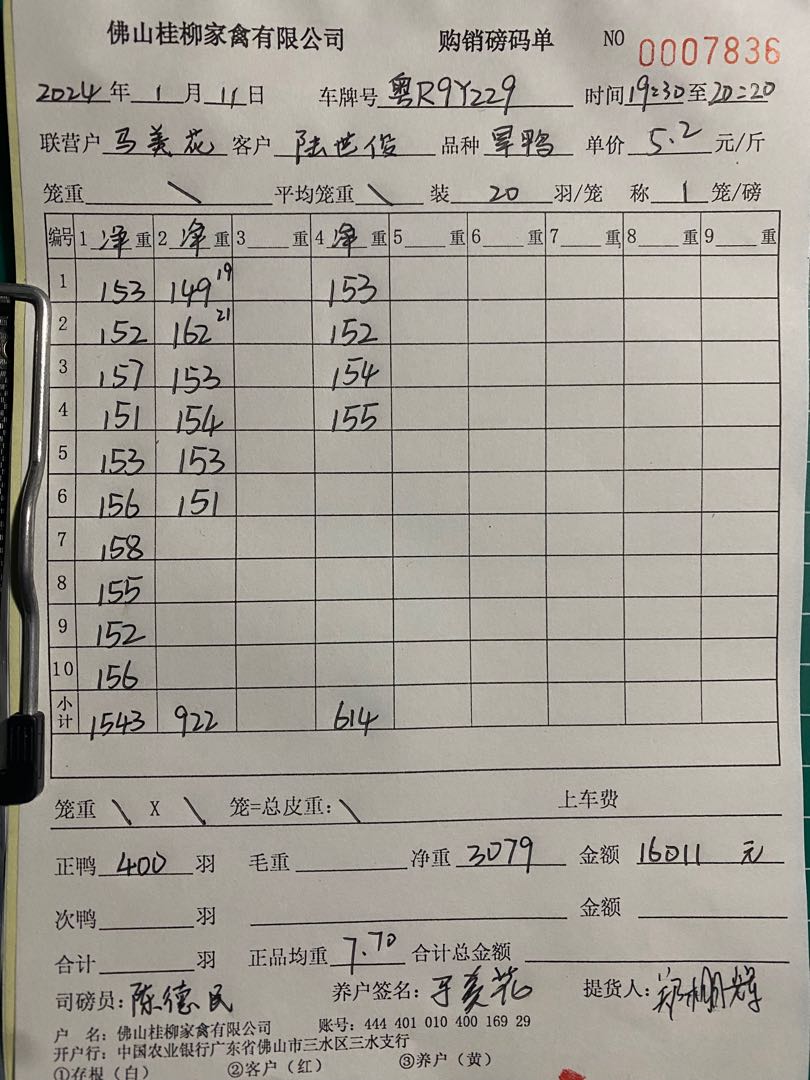 佛山桂柳家禽有限公司 购销磅码单 NO 0007836
2024年1月11日 车牌号粤R9Y229 时间19:30至20:20
联营户马美花 客户陆世俊 品种旱鸭 单价5.2元/斤
笼重\ 平均笼重\ 装20羽/笼 称1笼/磅
编号 1净重 2净重 3 重 4净重 5 重 6 重 7 重 8 重 9 重
1 153 149 19 153
2 152 162 21 152
3 157 153 154
4 151 154 155
5 153 153
6 156 151
7 158
8 155
9 152
10 156
小计 1543 922 614
笼重 \ X \ 笼=总皮重:\ 上车费
正鸭400羽 毛重 净重3079 金额16011元
次鸭 羽 金额
合计 羽 正品均重7.70 合计总金额
司磅员:陈德民 养户签名: 提货人:
户 名:佛山桂柳家禽有限公司 账号:444 401 010 400 169 29
开户行:中国农业银行广东省佛山市三水区三水支行
①存根(白) ②客户(红) ③养户(黄)